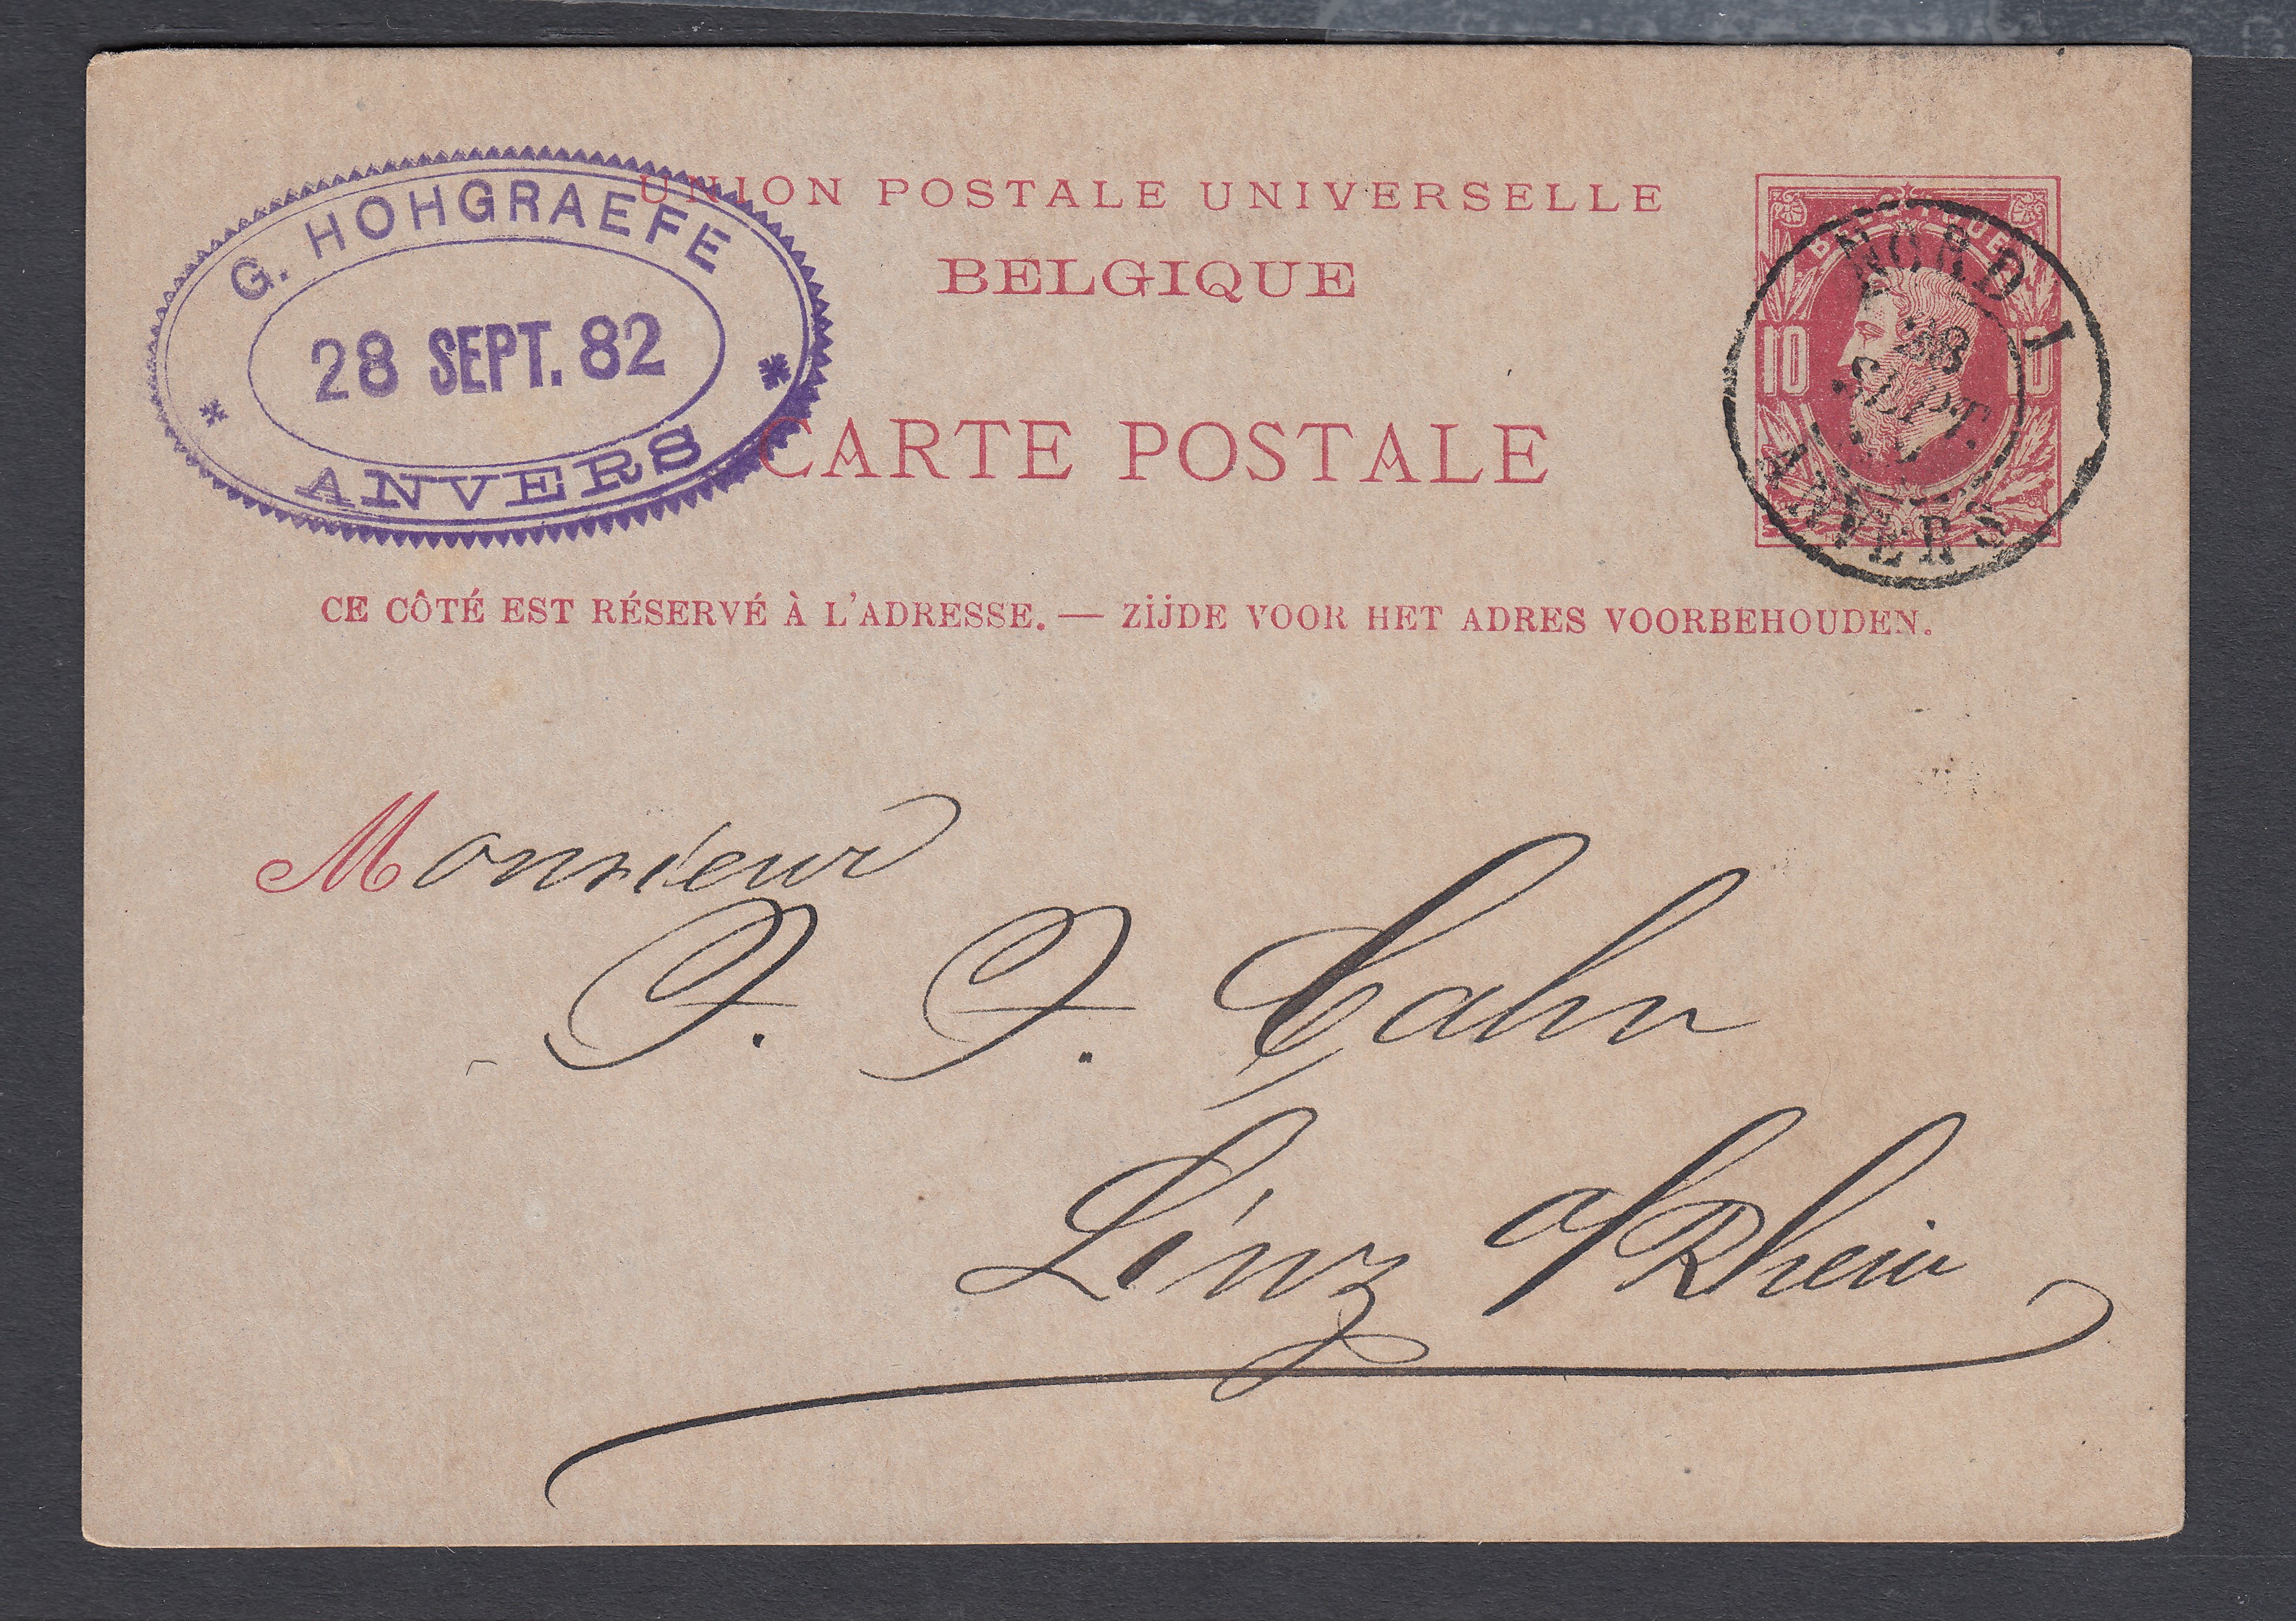 UNION POSTALE UNIVERSELLE
BELGIQUE
CARTE POSTALE
G. HOHGRAEFE
28 SEPT. 82
* ANVERS *
BELGIQUE
10 10
NORD 1
28
SEPT.
ANVERS
CE CÔTÉ EST RÉSERVÉ À L'ADRESSE. — ZIJDE VOOR HET ADRES VOORBEHOUDEN.
Monsieur
J. J. Cahn
Linz a/Rhein